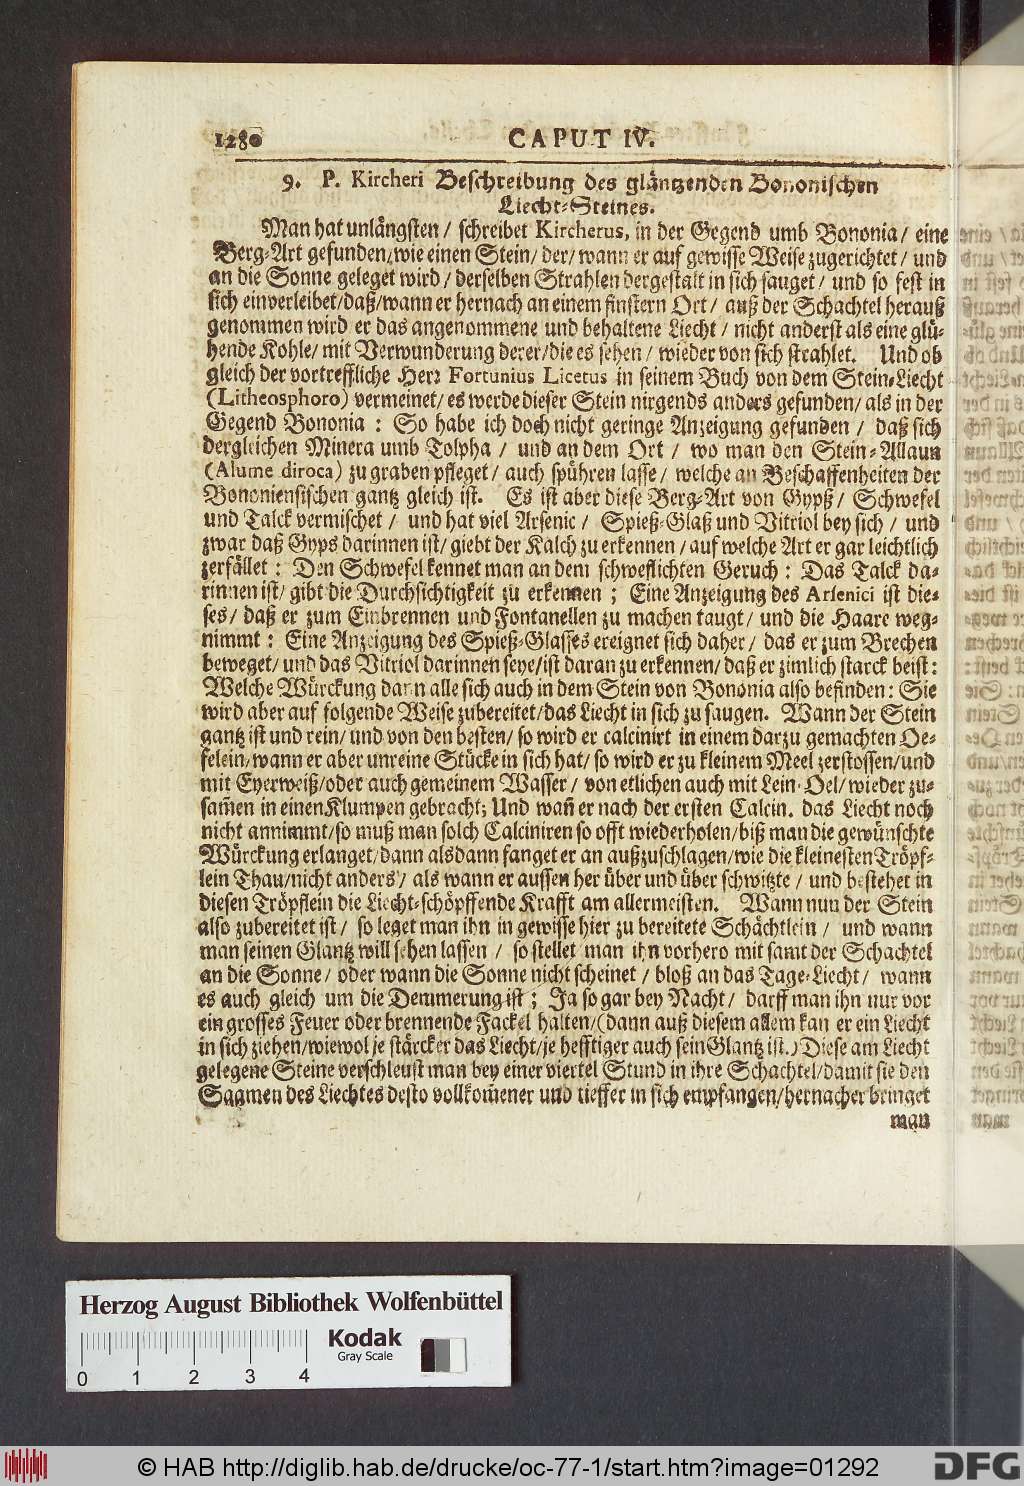 1280 CAPUT IV.
9. P. Kircheri Beschreibung des gläntzenden Bononischen
Liecht-Steines.
Man hat unlängsten / schreibet Kircherus, in der Gegend umb Bononia / eine
Berg-Art gefunden, wie einen Stein / der / wann er auf gewisse Weise zugerichtet / und
an die Sonne geleget wird / derselben Strahlen dergestalt in sich sauget / und so fest in
sich einverleibet / daß / wann er hernach an einem finstern Ort / auß der Schachtel herauß
genommen wird er das angenommene und behaltene Liecht / nicht anderst als eine glü-
hende Kohle / mit Verwunderung derer / die es sehen / wieder von sich strahlet. Und ob
gleich der vortreffliche Herr Fortunius Licetus in seinem Buch von dem Stein-Liecht
(Litheosphoro) vermeinet / es werde dieser Stein nirgends anders gefunden / als in der
Gegend Bononia : So habe ich doch nicht geringe Anzeigung gefunden / daß sich
dergleichen Minera umb Tolpha / und an dem Ort / wo man den Stein-Allaun
(Alume diroca) zu graben pfleget / auch spühren lasse / welche an Beschaffenheiten der
Bononiensischen gantz gleich ist. Es ist aber diese Berg-Art von Gypß / Schwefel
und Talck vermischet / und hat viel Arsenic / Spieß-Glaß und Vitriol bey sich / und
zwar daß Gyps darinnen ist / giebt der Kalch zu erkennen / auf welche Art er gar leichtlich
zerfället : Den Schwefel kennet man an dem schweflichten Geruch : Das Talck da-
rinnen ist / gibt die Durchsichtigkeit zu erkennen ; Eine Anzeigung des Arsenici ist die-
ses / daß er zum Einbrennen und Fontanellen zu machen taugt / und die Haare weg-
nimmt : Eine Anzeigung des Spieß-Glasses ereignet sich daher / das er zum Brechen
beweget / und das Vitriol darinnen seye / ist daran zu erkennen / daß er zimlich starck beist :
Welche Würckung dann alle sich auch in dem Stein von Bononia also befinden : Sie
wird aber auf folgende Weise zubereitet / das Liecht in sich zu saugen. Wann der Stein
gantz ist und rein / und von den besten / so wird er calcinirt in einem darzu gemachten Oe-
felein / wann er aber unreine Stücke in sich hat / so wird er zu kleinem Meel zerstossen / und
mit Eyerweiß / oder auch gemeinem Wasser / von etlichen auch mit Lein-Oel / wieder zu-
sam̄en in einen Klumpen gebracht ; Und wañ er nach der ersten Calcin. das Liecht noch
nicht annimmt / so muß man solch Calciniren so offt wiederholen / biß man die gewünschte
Würckung erlanget / dann alsdann fanget er an außzuschlagen / wie die kleinesten Tröpf-
lein Thau / nicht anders / als wann er aussen her über und über schwitzte / und bestehet in
diesen Tröpflein die Liecht-schöpffende Krafft am allermeisten. Wann nun der Stein
also zubereitet ist / so leget man ihn in gewisse hier zu bereitete Schächtlein / und wann
man seinen Glantz will sehen lassen / so stellet man ihn vorhero mit samt der Schachtel
an die Sonne / oder wann die Sonne nicht scheinet / bloß an das Tage-Liecht / wann
es auch gleich um die Demmerung ist ; Ja so gar bey Nacht / darff man ihn nur vor
ein grosses Feuer oder brennende Fackel halten / (dann auß diesem allem kan er ein Liecht
in sich ziehen / wiewol je stärcker das Liecht / je hefftiger auch sein Glantz ist.) Diese am Liecht
gelegene Steine verschleust man bey einer viertel Stund in ihre Schachtel / damit sie den
Saamen des Liechtes desto vollkom̄ener und tieffer in sich empfangen / hernacher bringet
man
Herzog August Bibliothek Wolfenbüttel
Kodak
Gray Scale
0 1 2 3 4
© HAB http://diglib.hab.de/drucke/oc-77-1/start.htm?image=01292
DFG